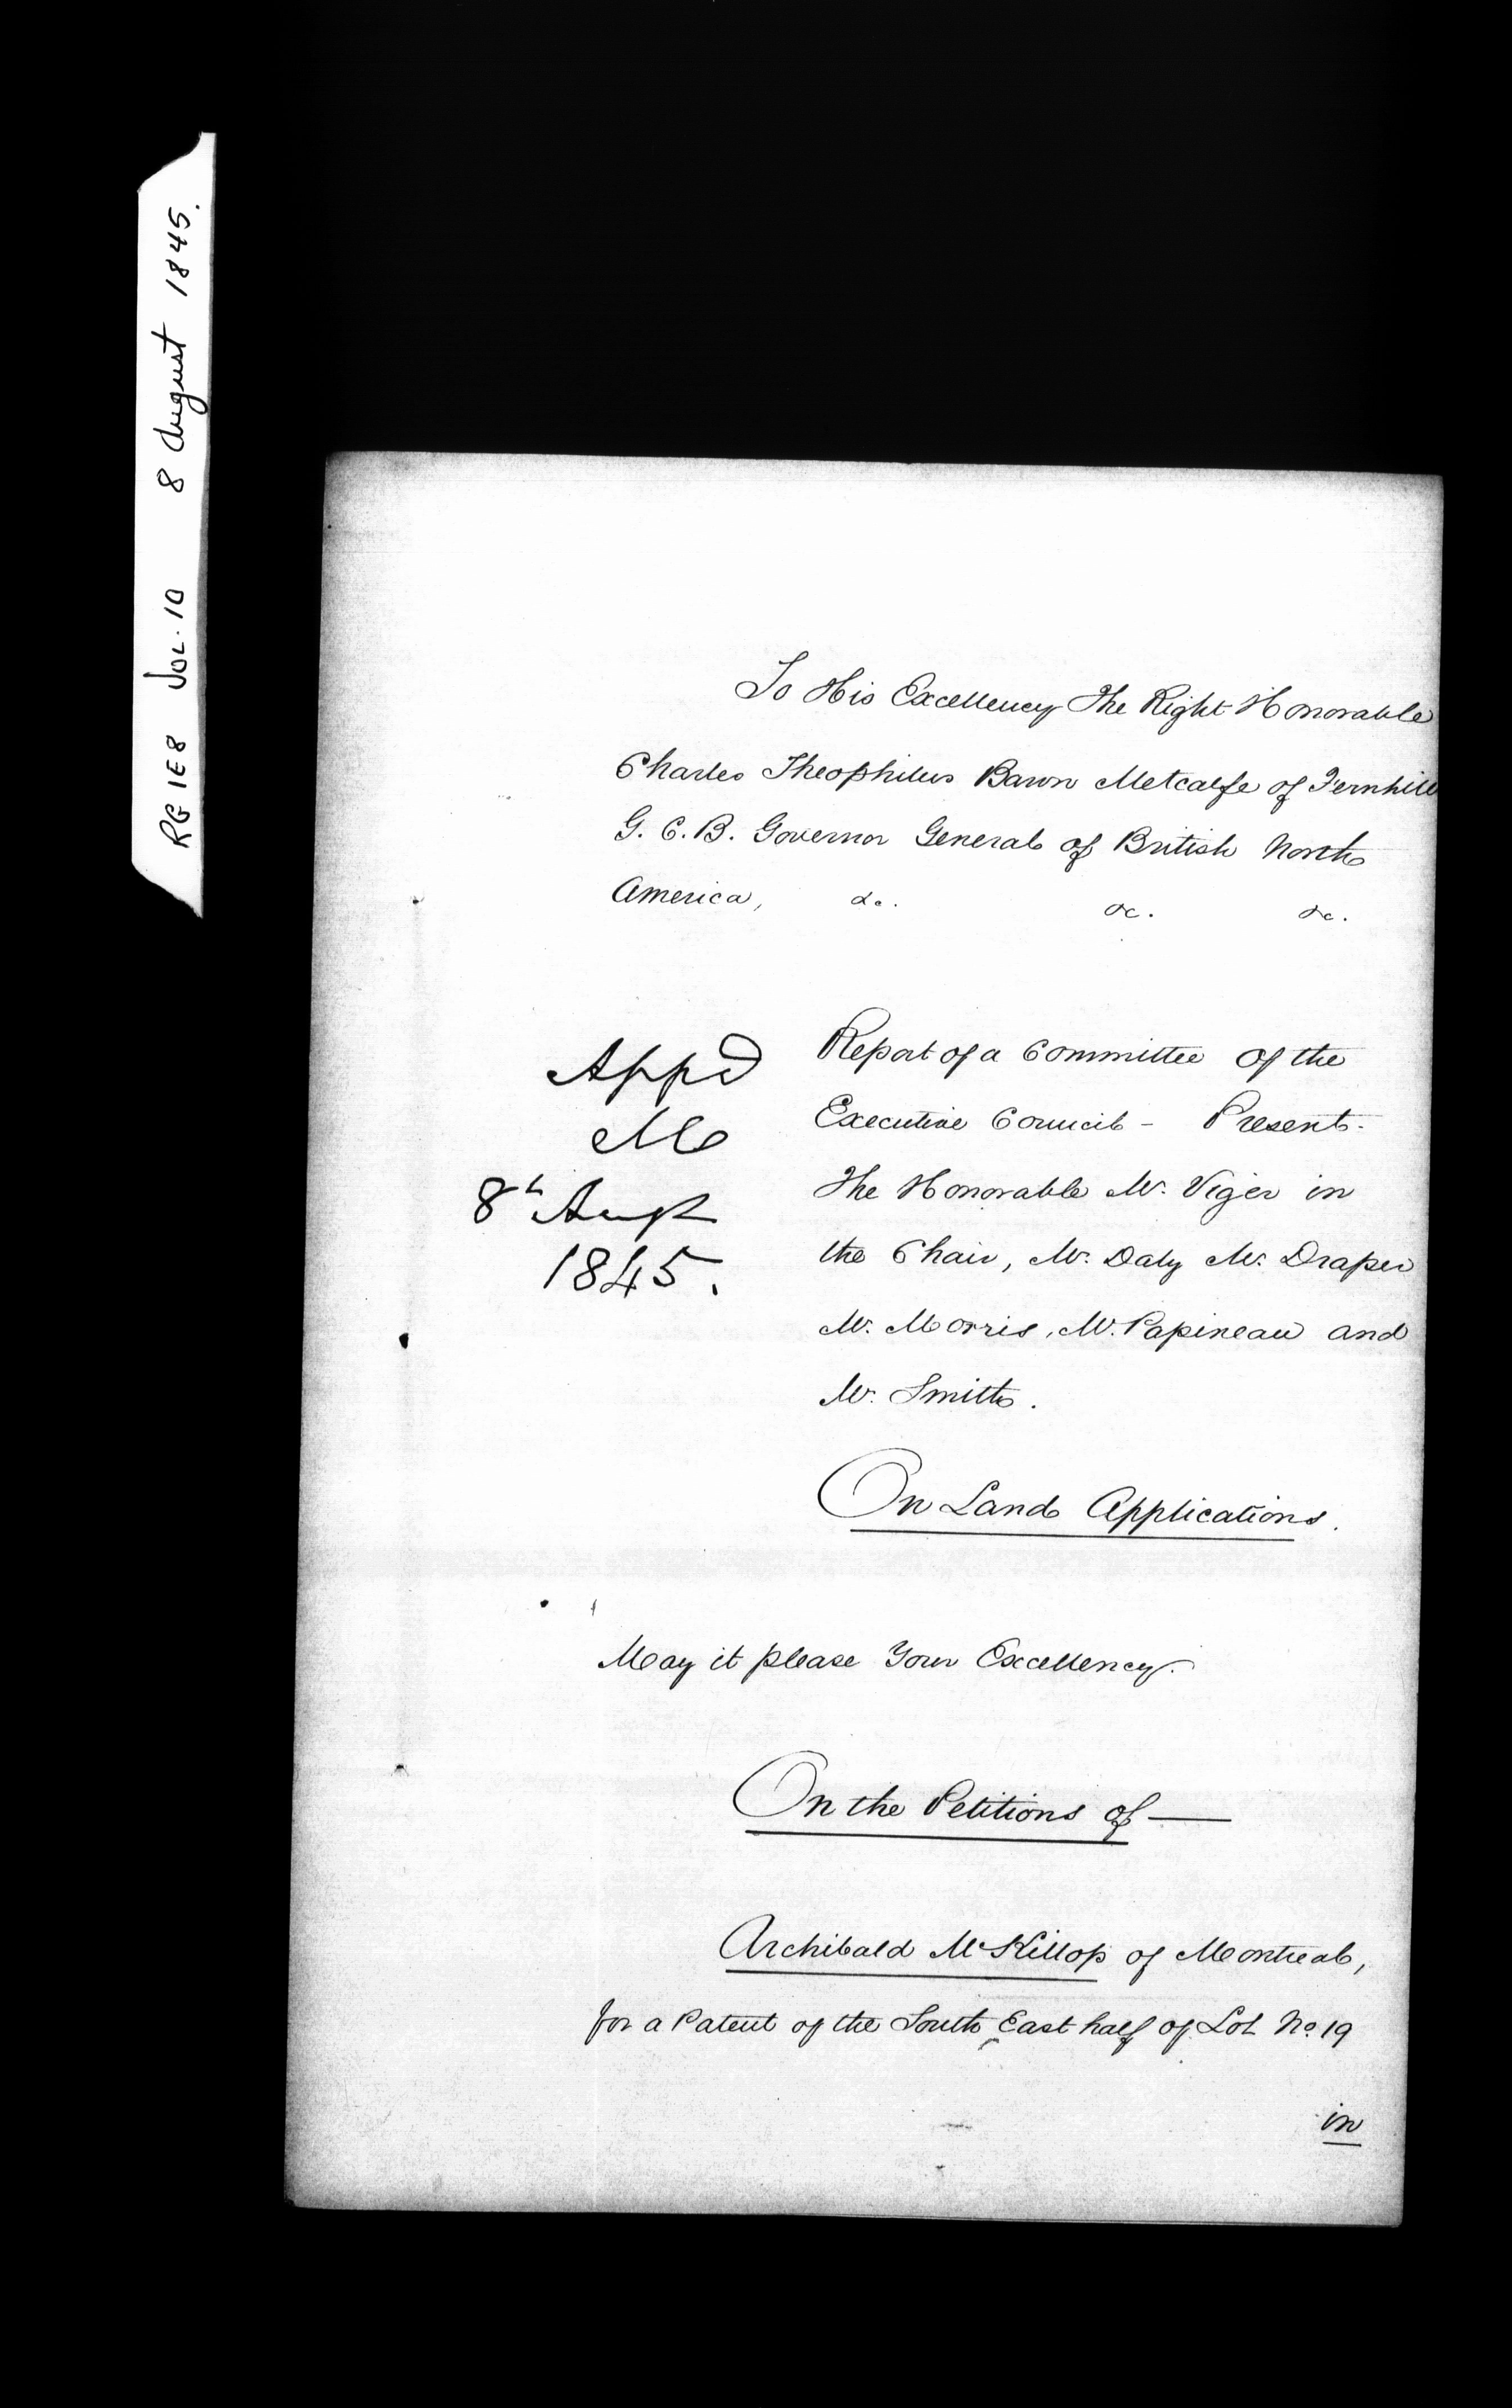 RG 1E8 Vol. 10 8 August 1845.
To His Excellency The Right Honorable
Charles Theophilus Baron Metcalfe of Fernhill
G. C. B. Governor General of British North
America, &c. &c. &c.
Appd
M
8th Augt
1845.
Report of a Committee of the
Executive Council - Present -
The Honorable Mr. Viger in
the Chair, Mr. Daly Mr. Draper
Mr. Morris, Mr. Papineau and
Mr. Smith.
On Land Applications.
May it please Your Excellency.
On the Petitions of —
Archibald McKillop of Montreal,
for a Patent of the South East half of Lot No. 19
in